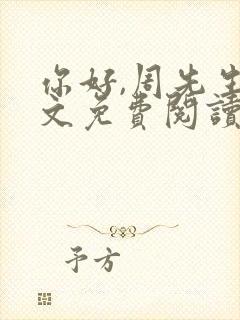 你好,周先生
文免費閱讀
予方